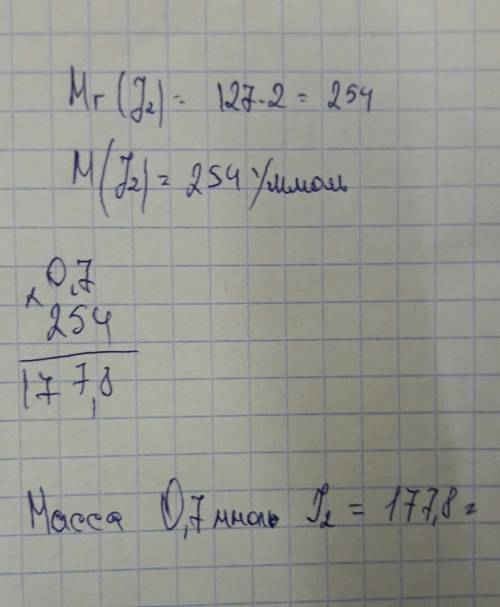 Mr (J₂) = 127·2 = 254
M (J₂) = 254 г/ммоль
× 0,7
254
177,8
Масса 0,7 ммоль J₂ = 177,8 г